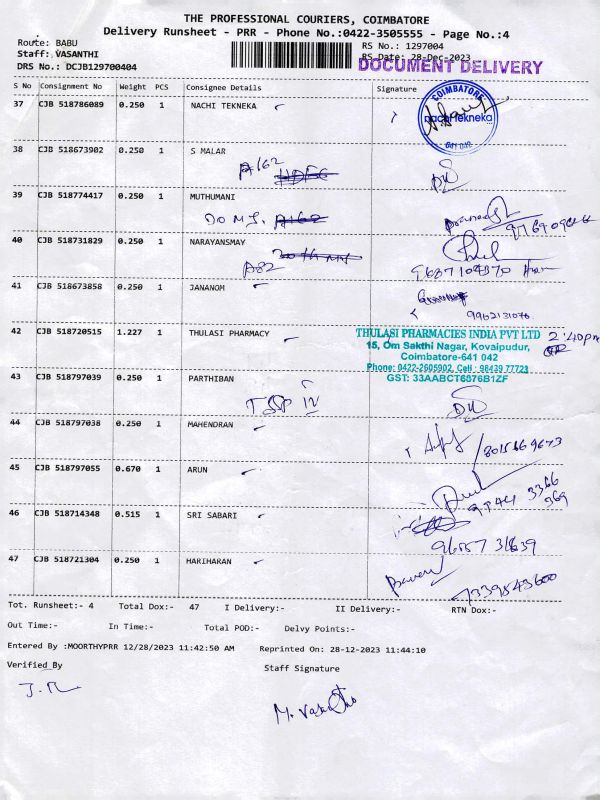 THE PROFESSIONAL COURIERS, COIMBATORE
Delivery Runsheet - PRR - Phone No.:0422-3505555 - Page No.:4
Route: BABU
Staff: VASANTHI
DRS No.: DCJB129700404
RS No.: 1297004
RS Date: 28-Dec-2023
DOCUMENT DELIVERY
S No Consignment No Weight PCS Consignee Details Signature
37 CJB 518786089 0.250 1 NACHI TEKNEKA
COIMBATORE
nachi Tekneka
38 CJB 518673902 0.250 1 S MALAR
A162
39 CJB 518774417 0.250 1 MUTHUMANI
A162
40 CJB 518731829 0.250 1 NARAYANSMAY
A82
9687104370
41 CJB 518673858 0.250 1 JANANOM
9962131076
42 CJB 518720515 1.227 1 THULASI PHARMACY
THULASI PHARMACIES INDIA PVT LTD
15, Om Sakthi Nagar, Kovaipudur,
Coimbatore-641 042
Phone: 0422-2605902, Cell : 98439 77723
GST: 33AABCT6876B1ZF
2:40pm
43 CJB 518797039 0.250 1 PARTHIBAN
TSP IV
44 CJB 518797038 0.250 1 MAHENDRAN
8015669673
45 CJB 518797055 0.670 1 ARUN
46 CJB 518714348 0.515 1 SRI SABARI
47 CJB 518721304 0.250 1 HARIHARAN
7339843600
Tot. Runsheet:- 4 Total Dox:- 47 I Delivery:- II Delivery:- RTN Dox:-
Out Time:- In Time:- Total POD:- Delvy Points:-
Entered By :MOORTHYPRR 12/28/2023 11:42:50 AM Reprinted On: 28-12-2023 11:44:10
Verified By Staff Signature
M. Vasantha